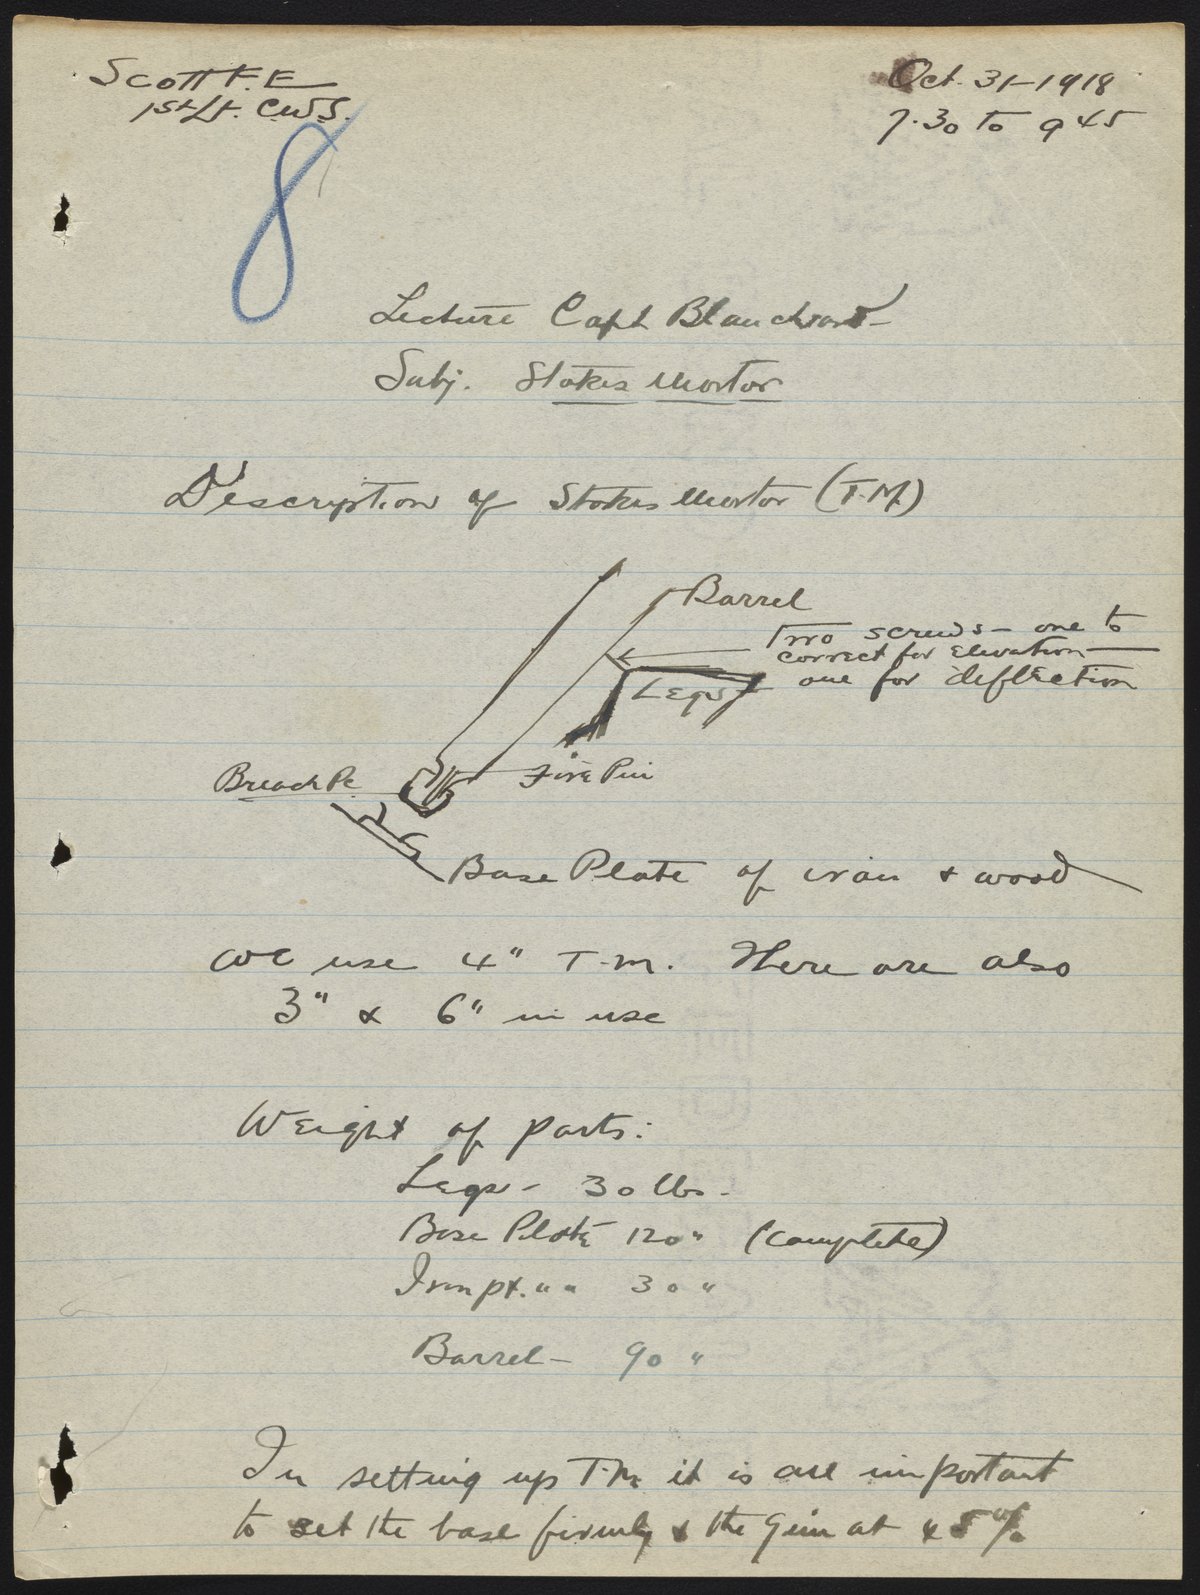 Scott F. E
1st Lt. C.W.S.
Oct. 31-1918
7.30 to 9 45
8
Lecture Capt Blanchard
Subj. Stokes Mortar
Description of Stokes Mortar (T.M.)
Barrel
Two screws - one to
correct for Elevation
one for deflection
Legs
Breach Pc
Fire Pin
Base Plate of iron & wood
We use 4" T.M. There are also
3" & 6" in use
Weight of parts:
Legs - 30 lbs.
Base Plate 120 " (complete)
Iron pt. " " 30 "
Barrel - 90 "
In setting up T.M. it is all important
to set the base firmly & the gun at 45